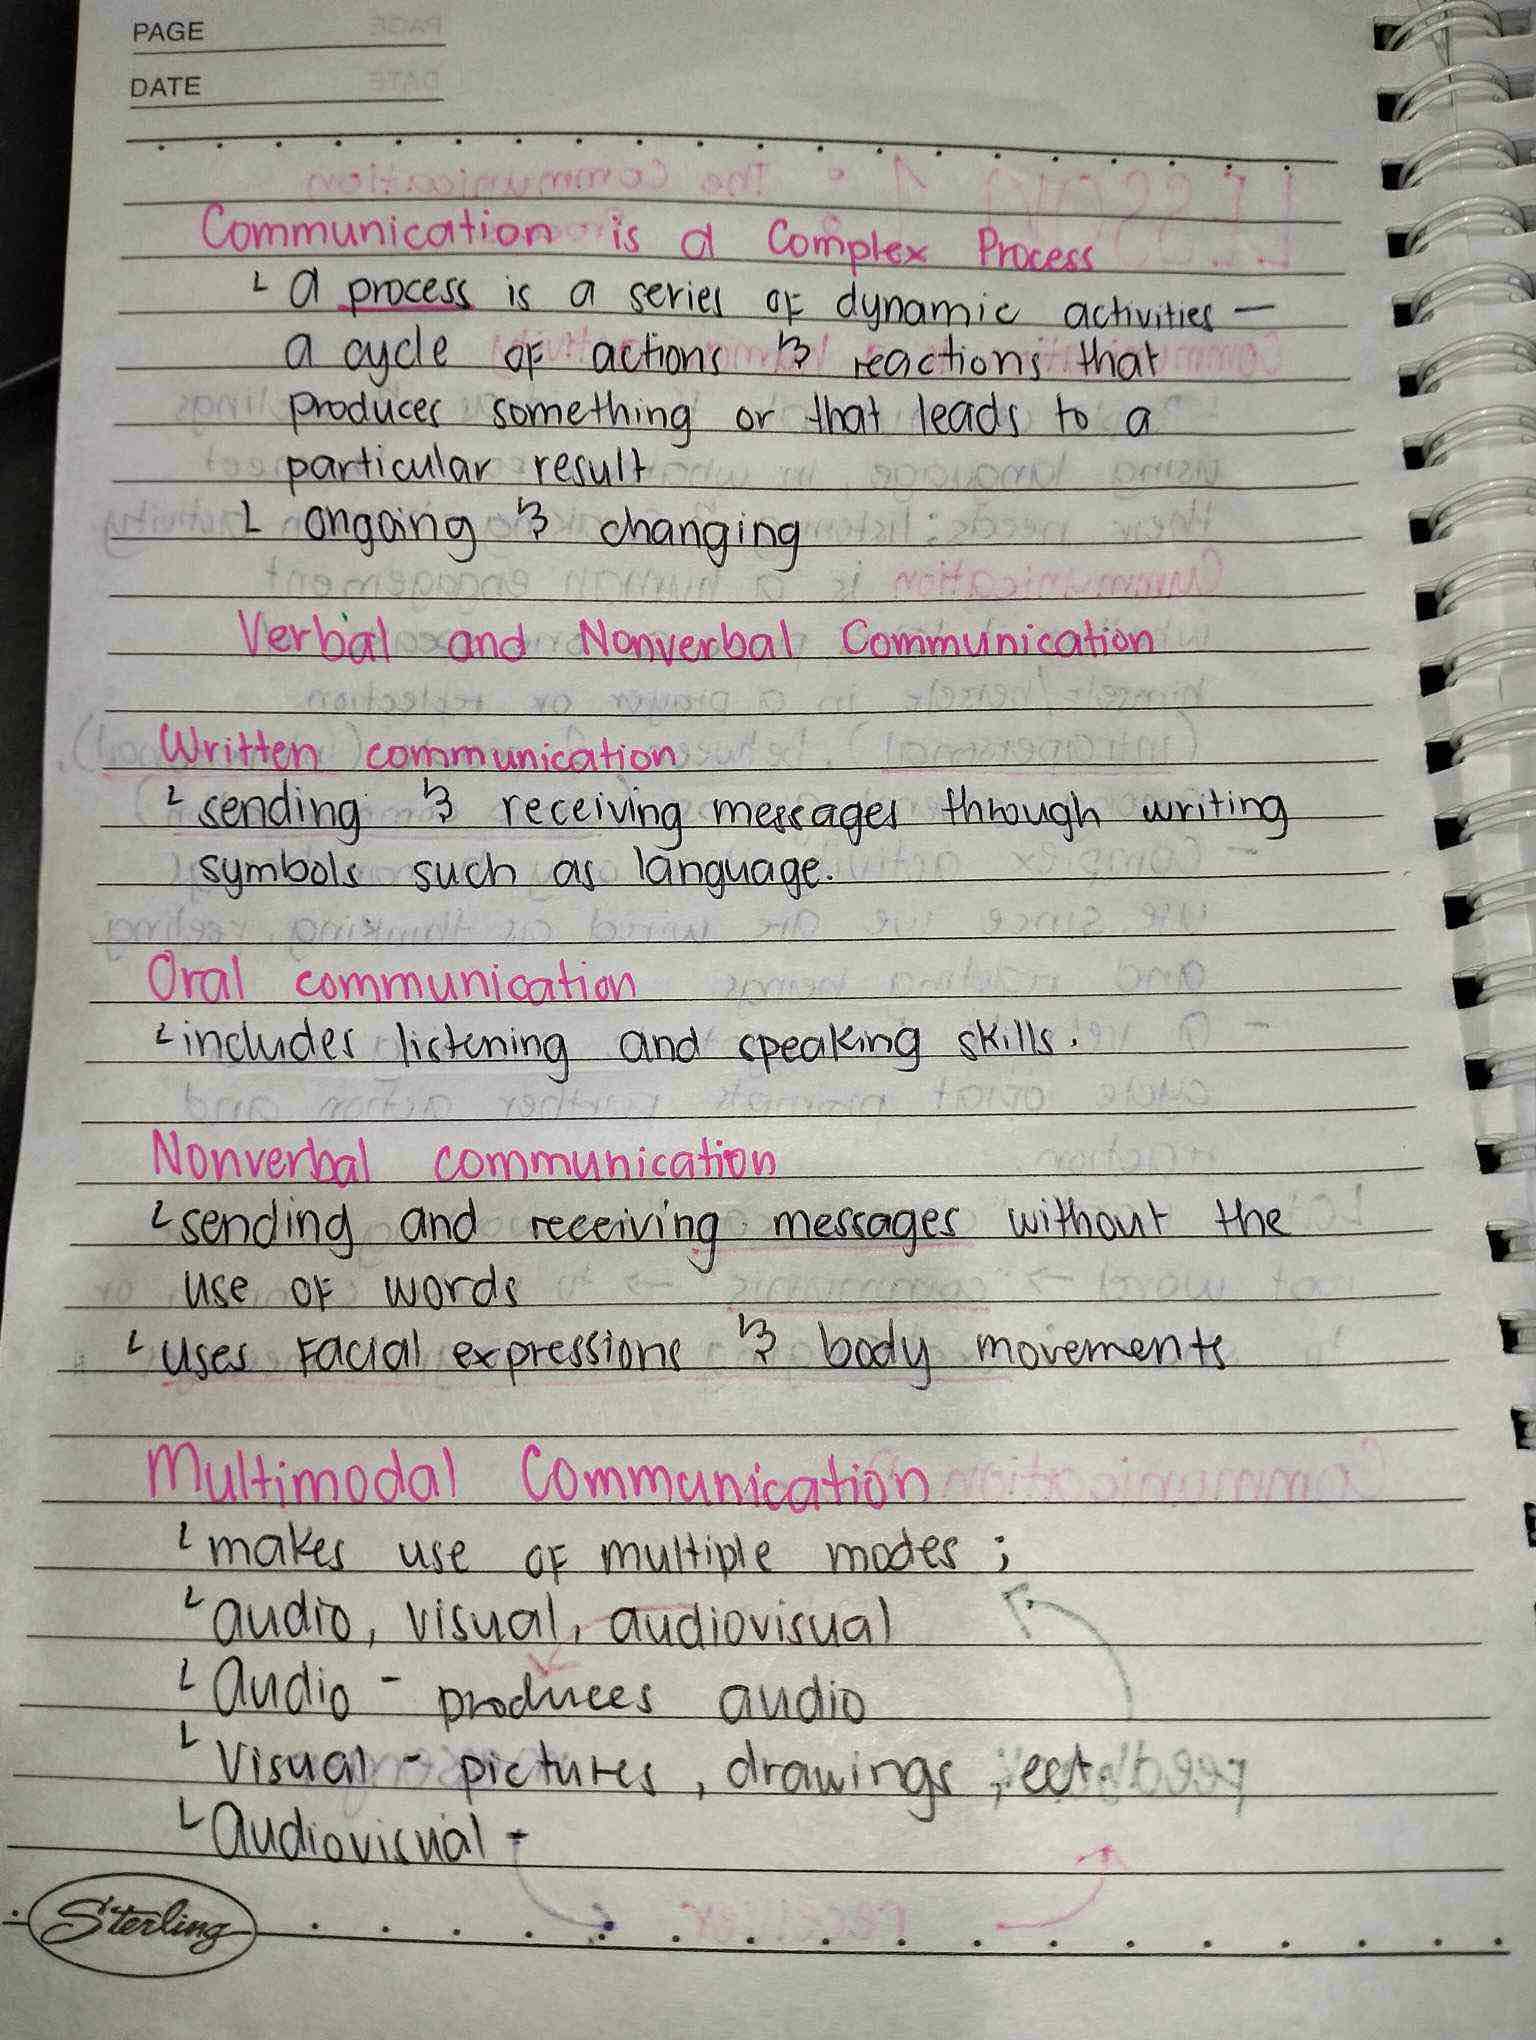 PAGE
DATE
Communication is a Complex Process
└ a process is a series of dynamic activities —
a cycle of actions & reactions that
produces something or that leads to a
particular result
└ ongoing & changing
Verbal and Nonverbal Communication
Written communication
└ sending & receiving messages through writing
symbols such as language.
Oral communication
└ includes listening and speaking skills.
Nonverbal communication
└ sending and receiving messages without the
use of words
└ uses facial expressions & body movements
Multimodal Communication
└ makes use of multiple modes ;
└ audio, visual, audiovisual
└ Audio - produces audio
└ Visual - pictures, drawings, ect.
└ Audiovisual -
Sterling